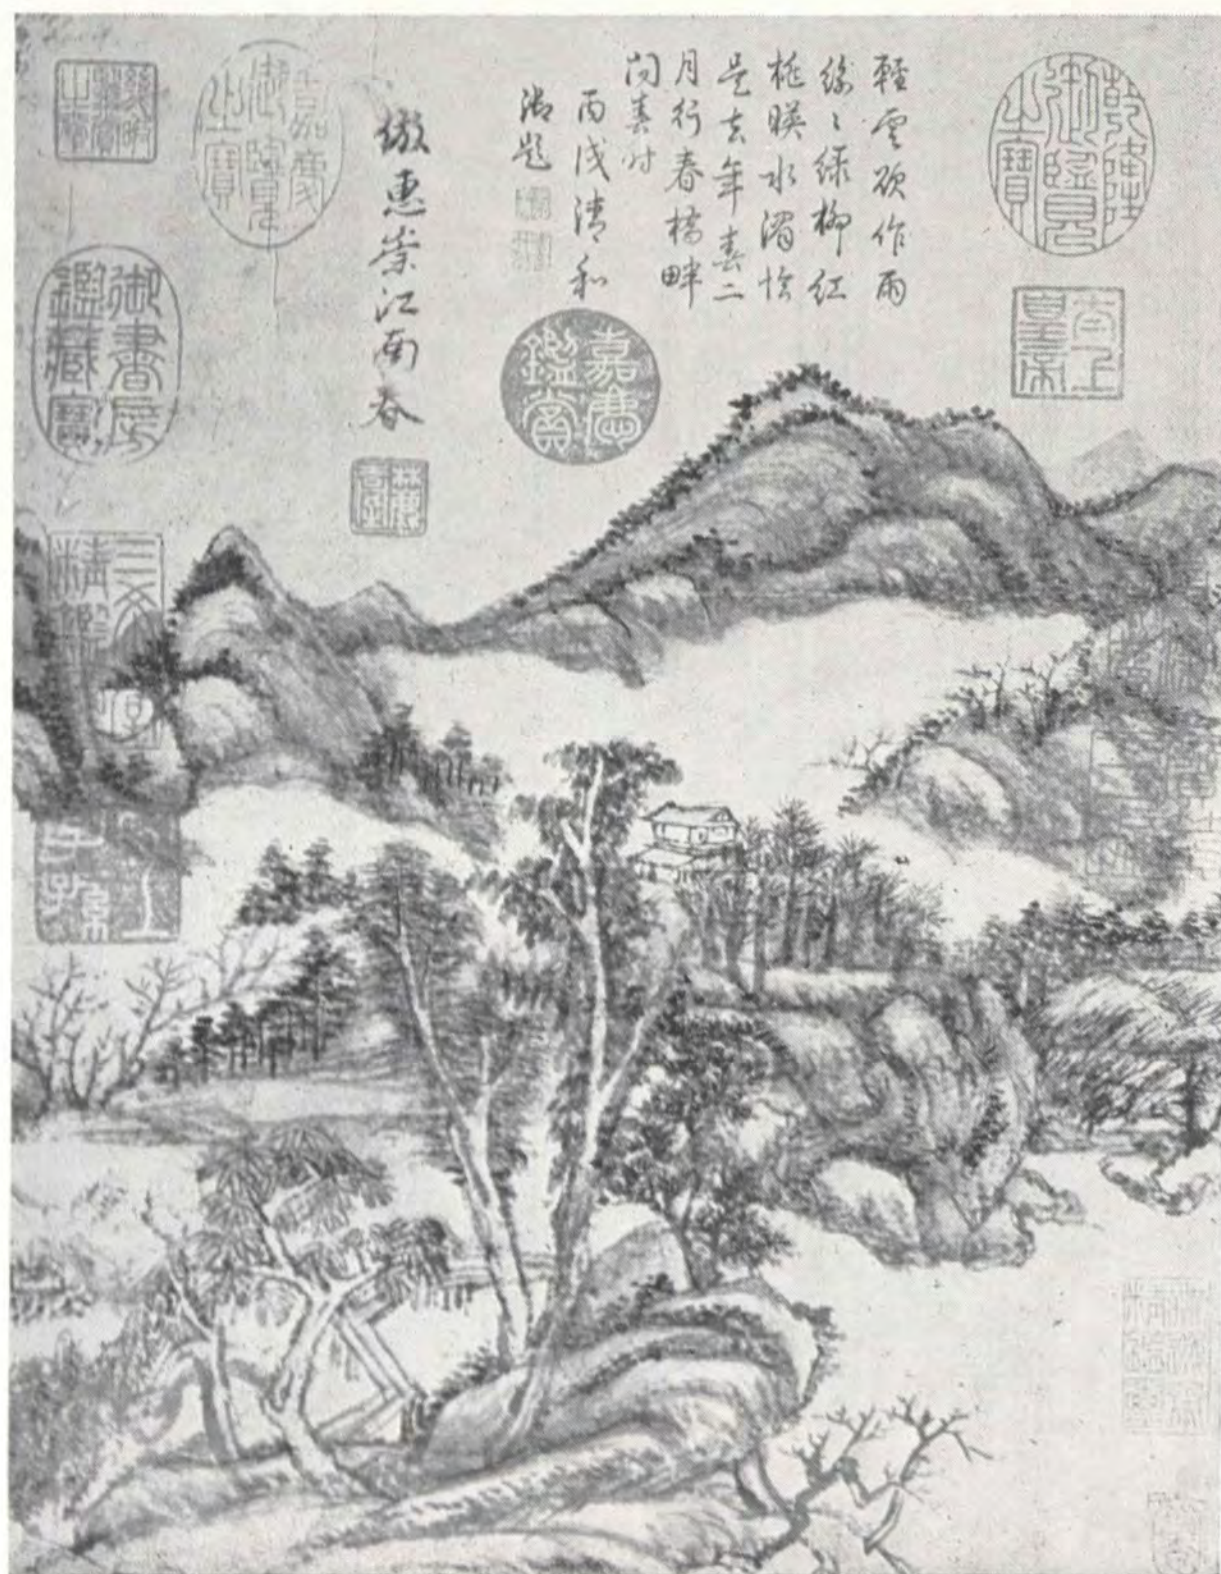 乾隆御覽之寶
太上皇帝
輕雲欲作雨
絲〻綠柳紅
桃暎水湄恰
是去年春二
月行春橋畔
問春时
丙戌清和
御題
嘉慶鑑賞
倣惠崇江南春
麓臺
嘉慶御覽之寶
御書房鑑藏寶
三希堂精鑑璽
宜子孫